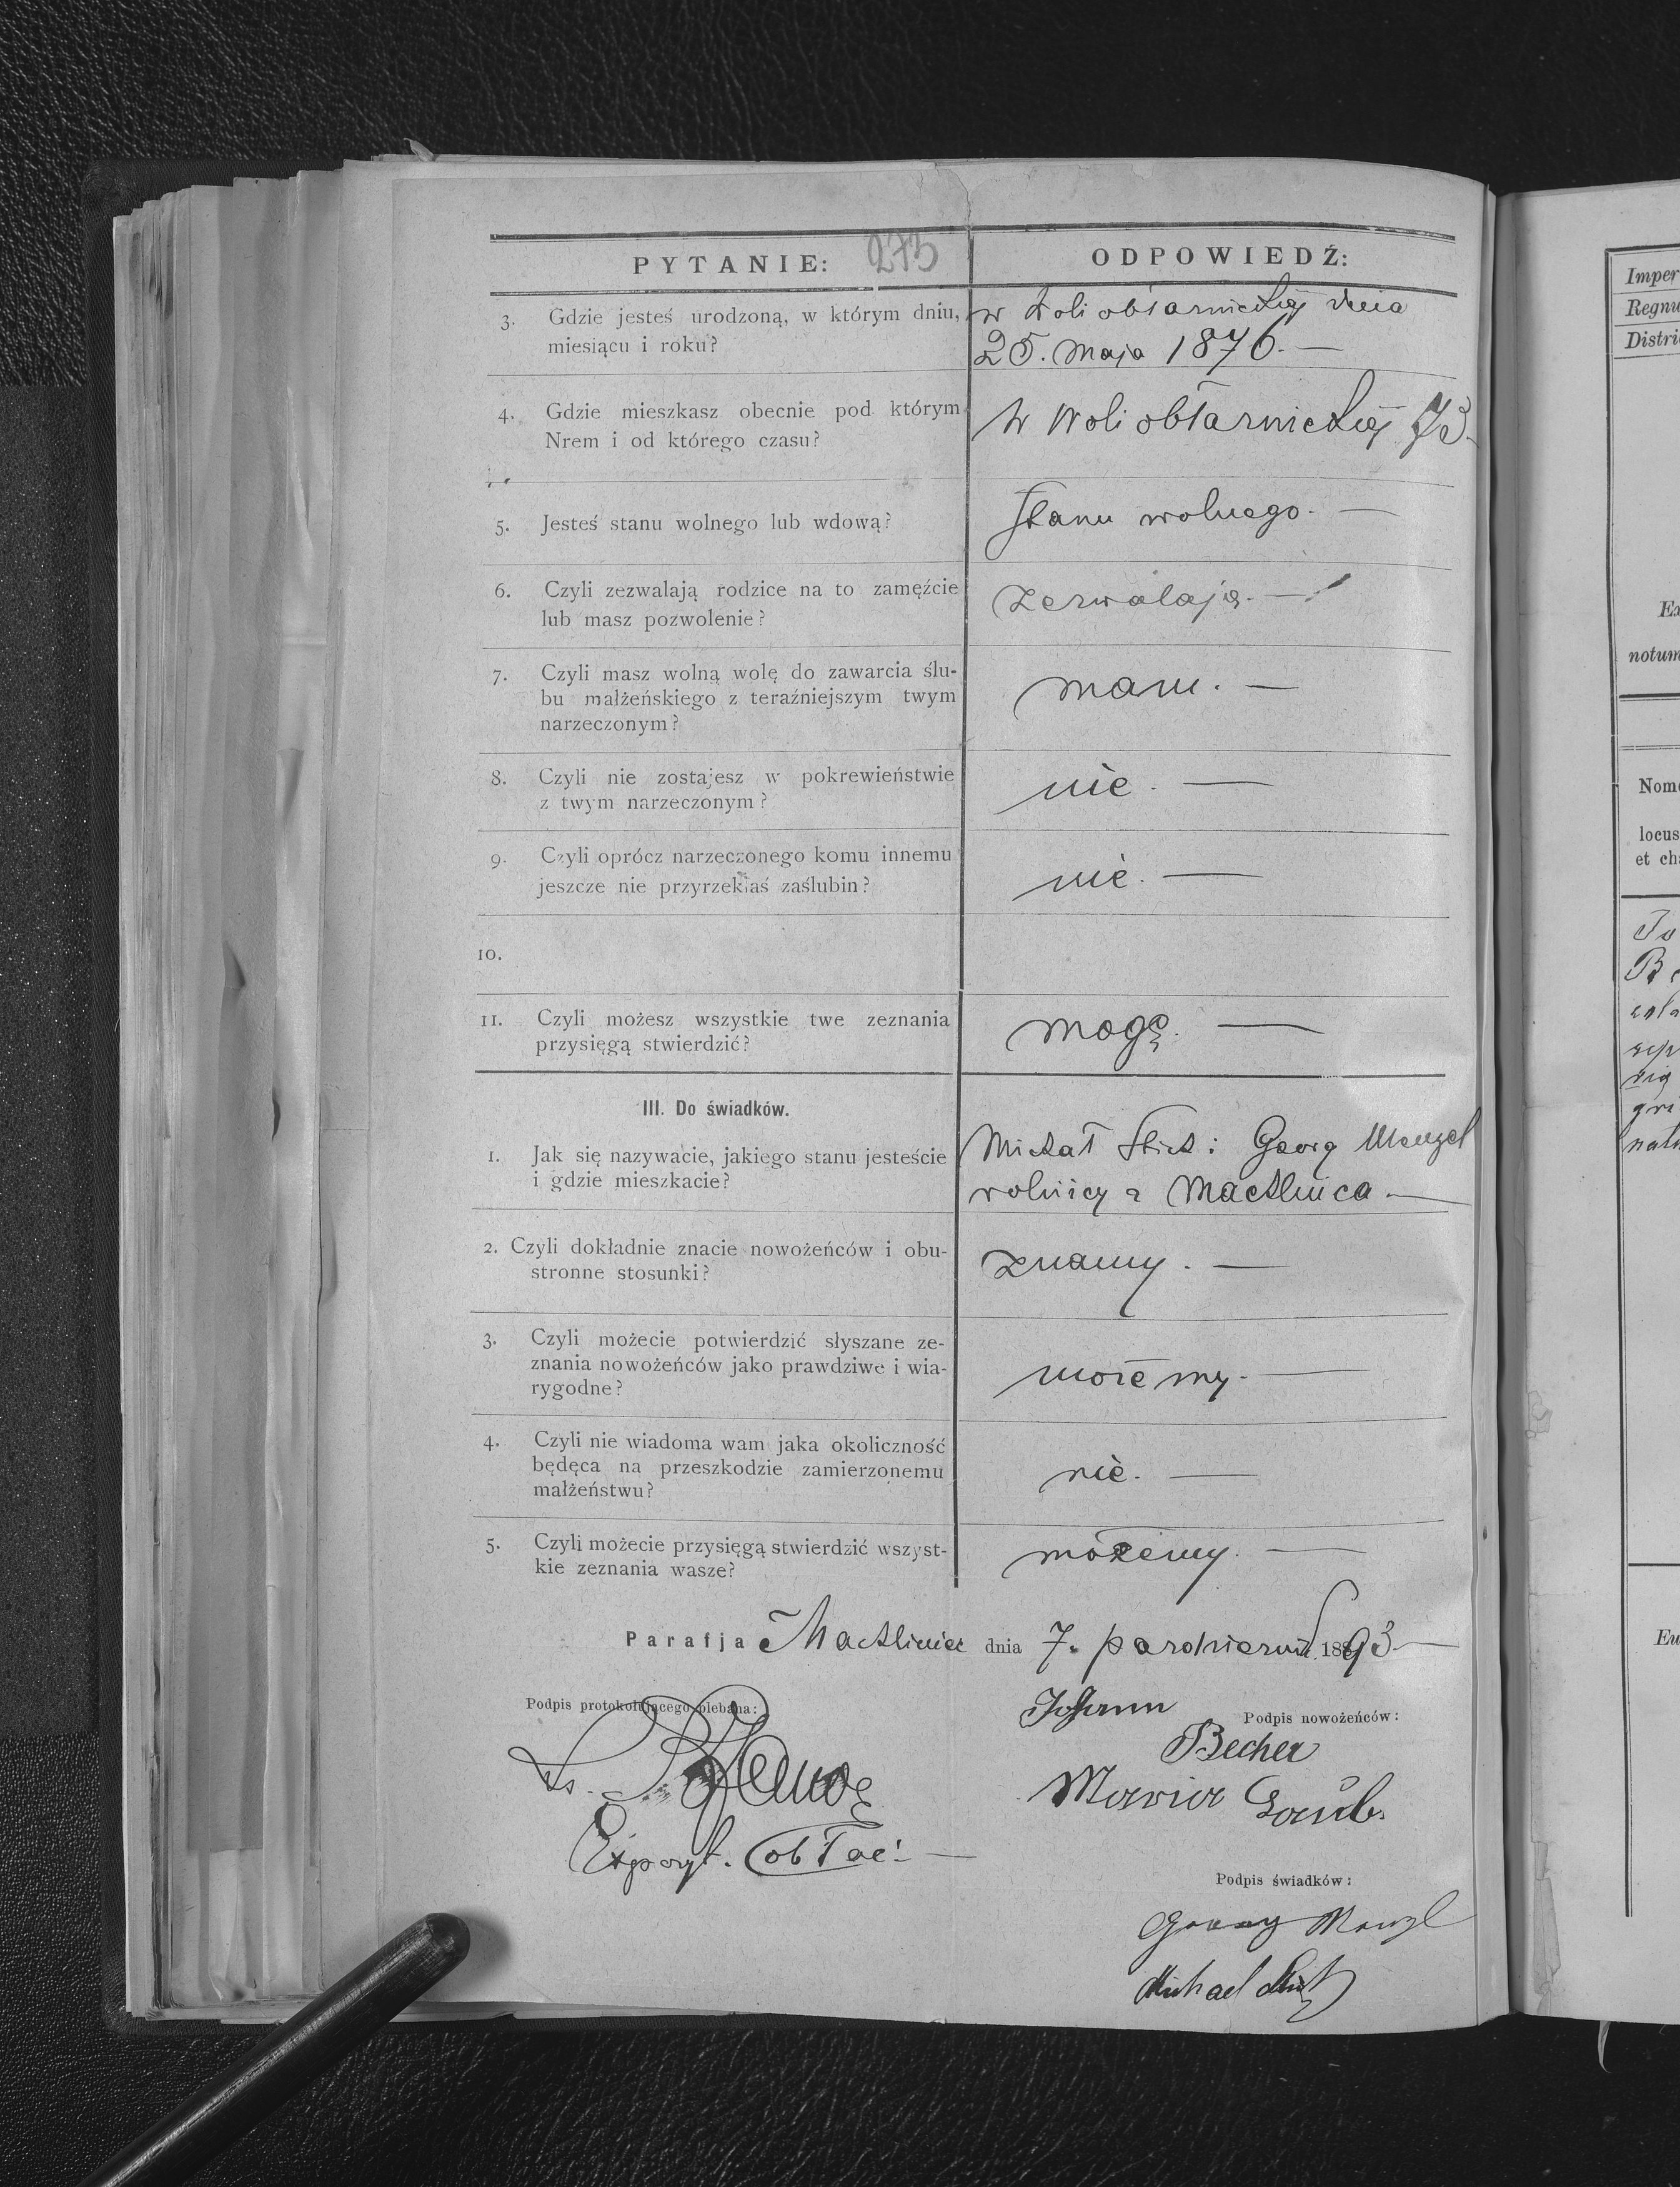 PYTANIE: 273 ODPOWIEDŹ:
3. Gdzie jesteś urodzoną, w którym dniu,
miesiącu i roku?
w Woli obłarnickiej dnia
25. Maja 1876. —
4. Gdzie mieszkasz obecnie pod którym
Nrem i od którego czasu?
W Woli obłarnickiej 73.
5. Jesteś stanu wolnego lub wdową?
Stanu wolnego. —
6. Czyli zezwalają rodzice na to zamęźcie
lub masz pozwolenie?
Zezwalają. —
7. Czyli masz wolną wolę do zawarcia ślu-
bu małżeńskiego z teraźniejszym twym
narzeczonym?
mam. —
8. Czyli nie zostajesz w pokrewieństwie
z twym narzeczonym?
nie. —
9. Czyli oprócz narzeczonego komu innemu
jeszcze nie przyrzekłaś zaślubin?
nie. —
10.
11. Czyli możesz wszystkie twe zeznania
przysięgą stwierdzić?
mogę. —
III. Do świadków.
1. Jak się nazywacie, jakiego stanu jesteście
i gdzie mieszkacie?
Michał i Georg Menzel
rolnicy z Machlinca —
2. Czyli dokładnie znacie nowożeńców i obu-
stronne stosunki?
Znamy. —
3. Czyli możecie potwierdzić słyszane ze-
znania nowożeńców jako prawdziwe i wia-
rygodne?
możemy. —
4. Czyli nie wiadoma wam jaka okoliczność
będęca na przeszkodzie zamierzonemu
małżeństwu?
nie. —
5. Czyli możecie przysięgą stwierdzić wszyst-
kie zeznania wasze?
możemy. —
Parafja Machliniec dnia 7. październ. 1893 —
Podpis protokołującego plebana:
Johann
Podpis nowożeńców:
Becher
Ks.
Maria Gaub.
Expozyt.
Podpis świadków:
Georg Menzl
Michael
Imper
Regnu
Distri
Ex
notum
Nome
locus
et cha
Jo
Be
Eu